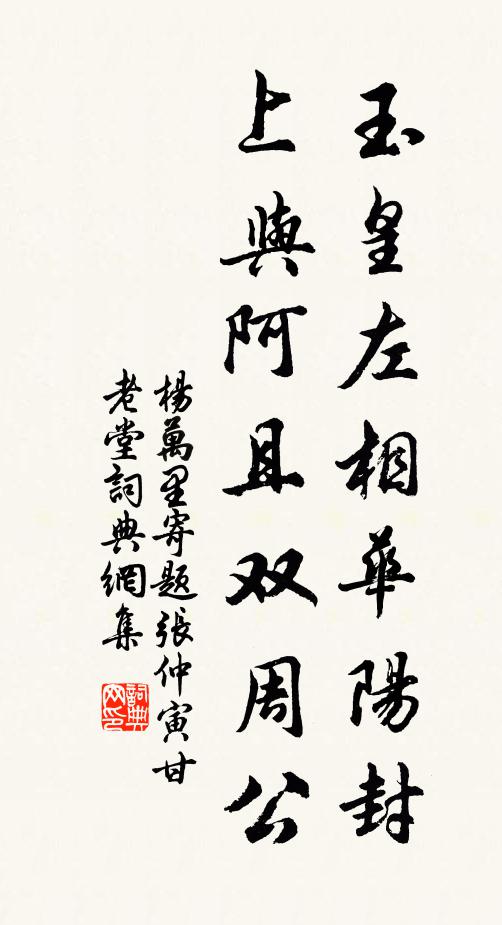 玉皇左相華陽封
上與阿且双周公
楊萬里寄题張仲寅甘
老堂詞典網集
詞典
网印